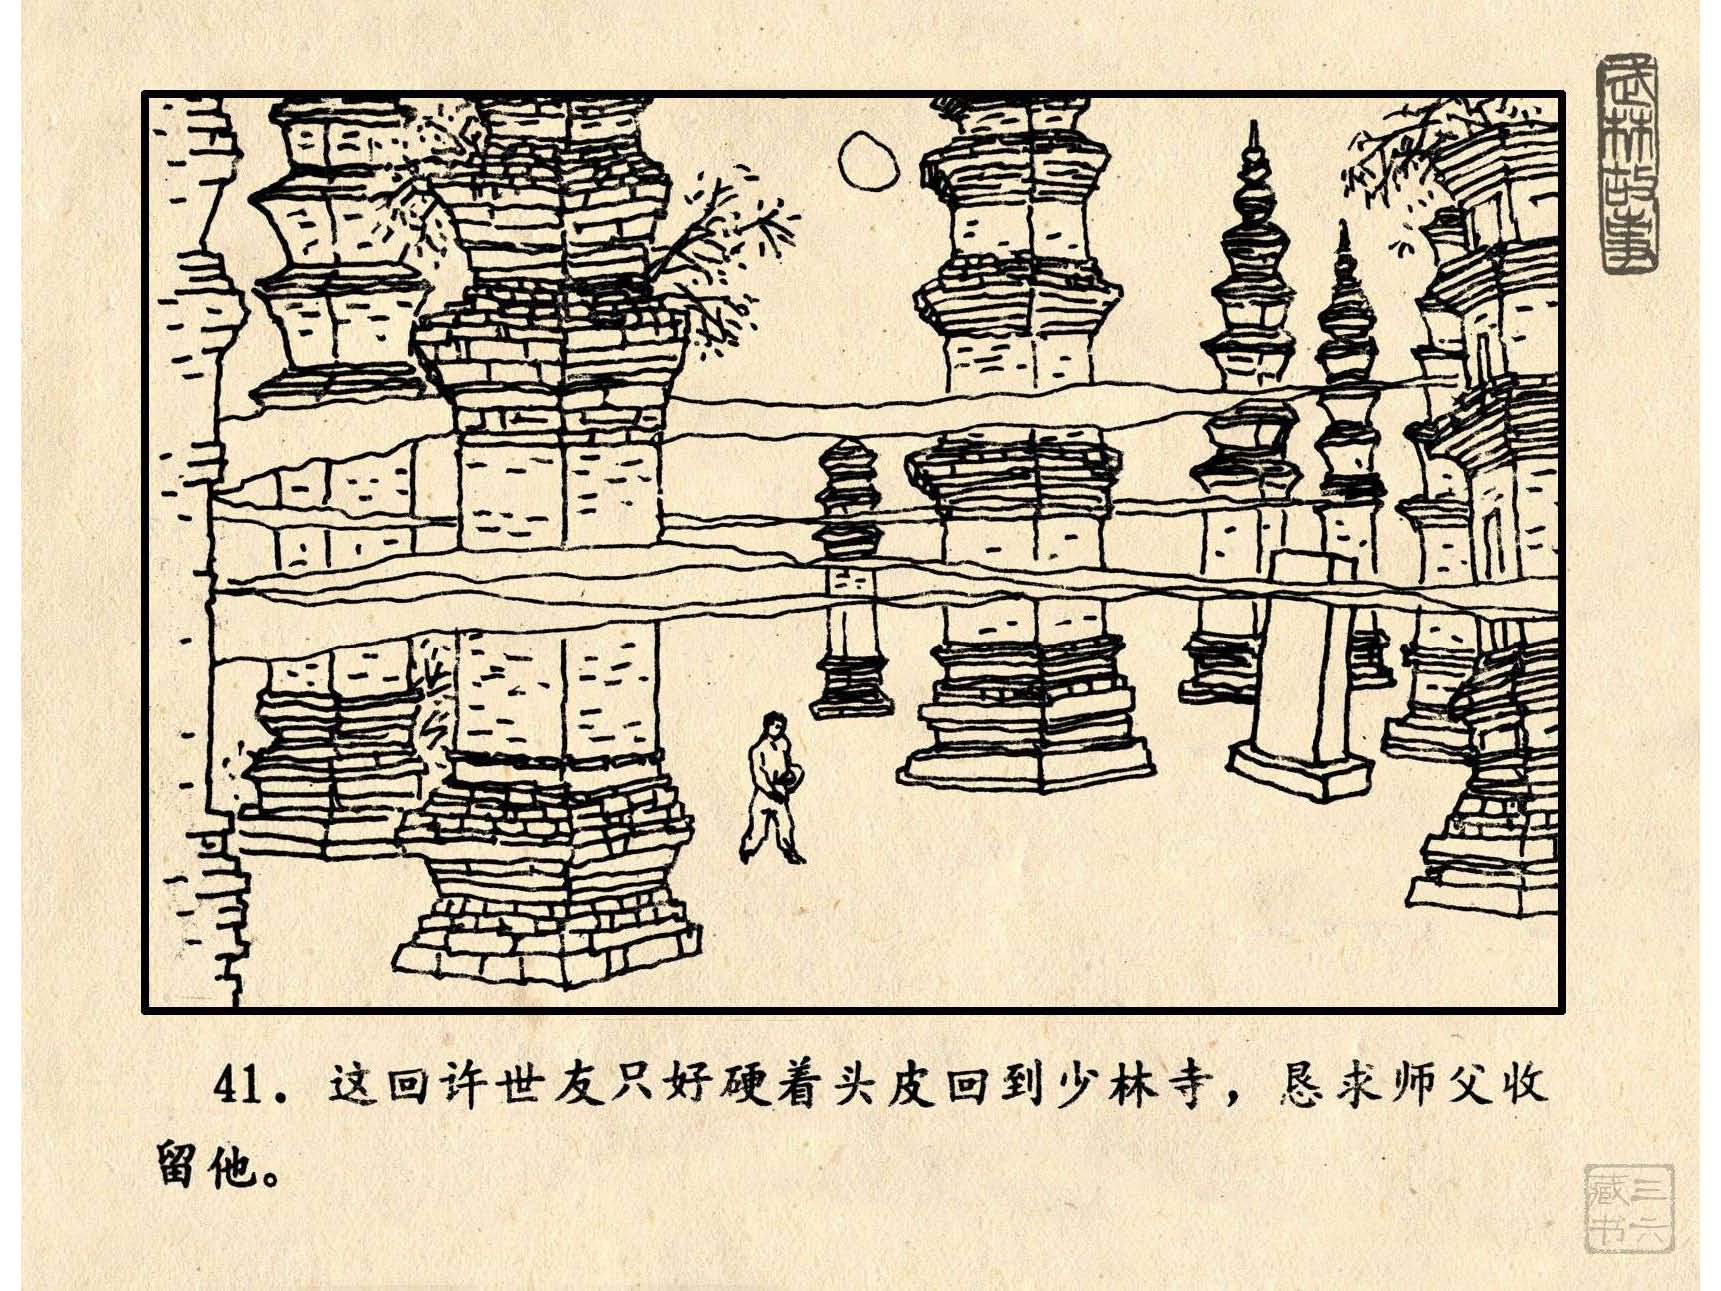 武林故事
41．这回许世友只好硬着头皮回到少林寺，恳求师父收
留他。
三六
藏书